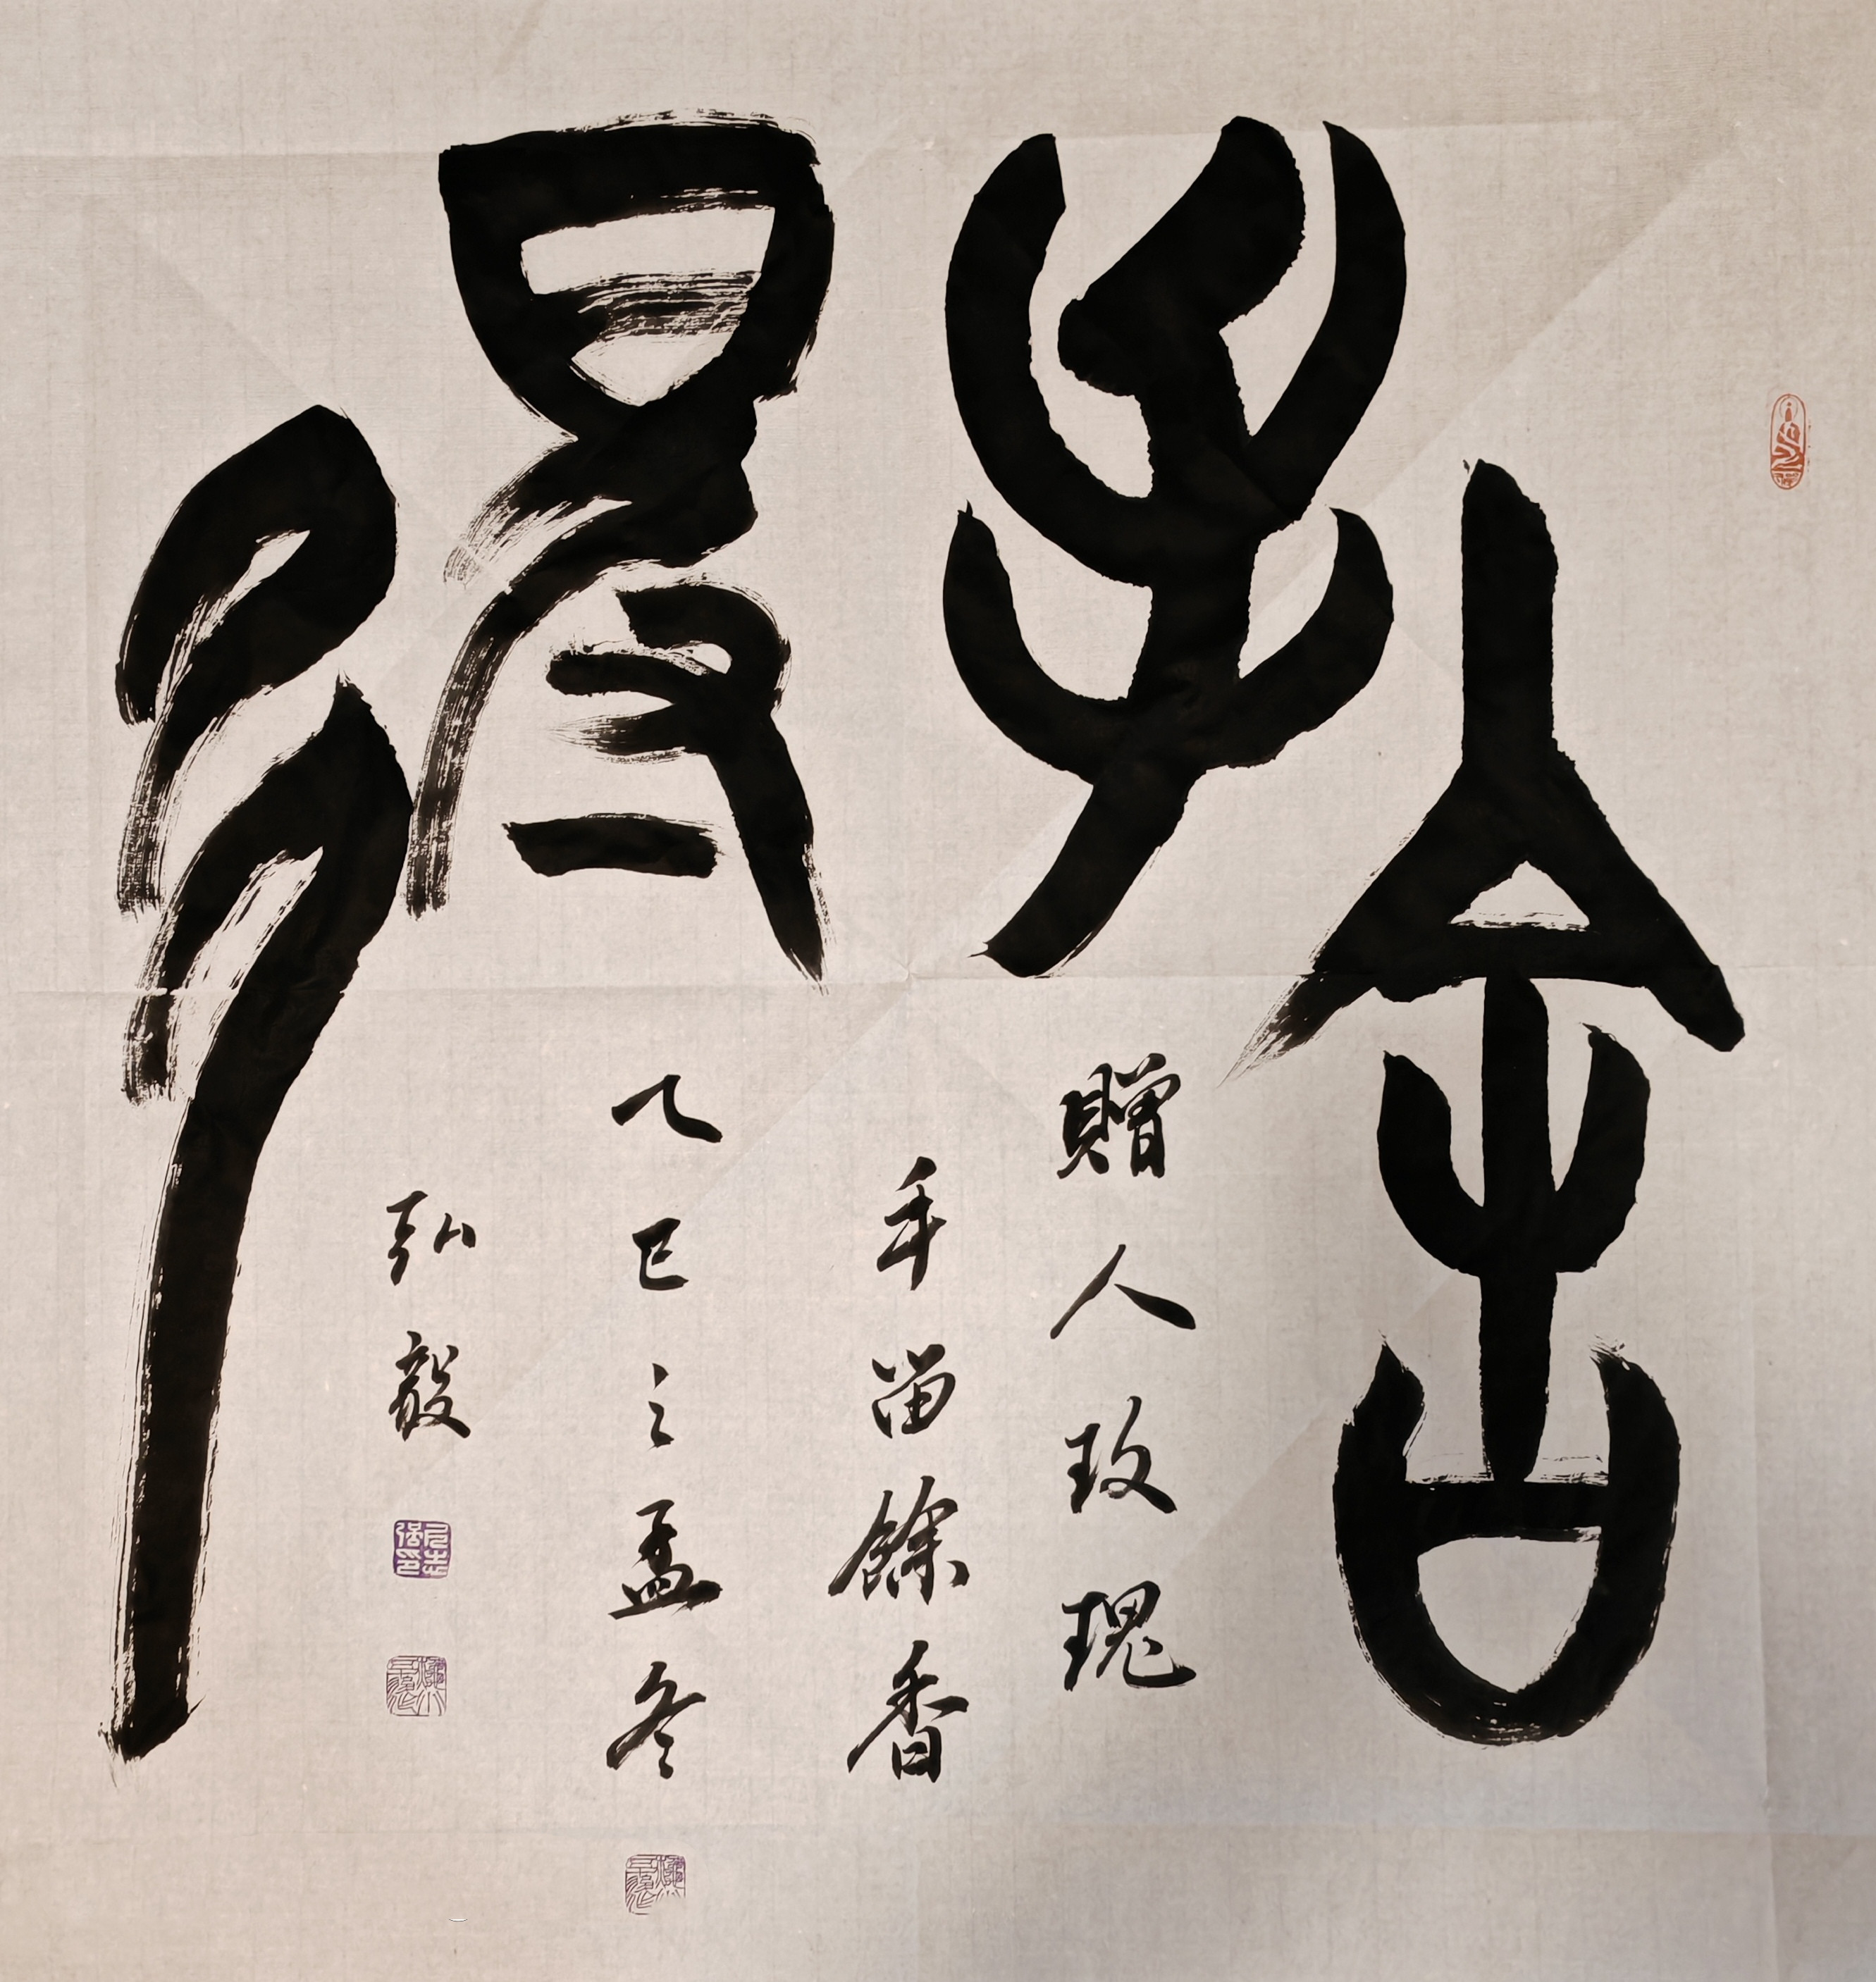 捨得
贈人玫瑰
手留餘香
乙巳之孟冬
弘毅